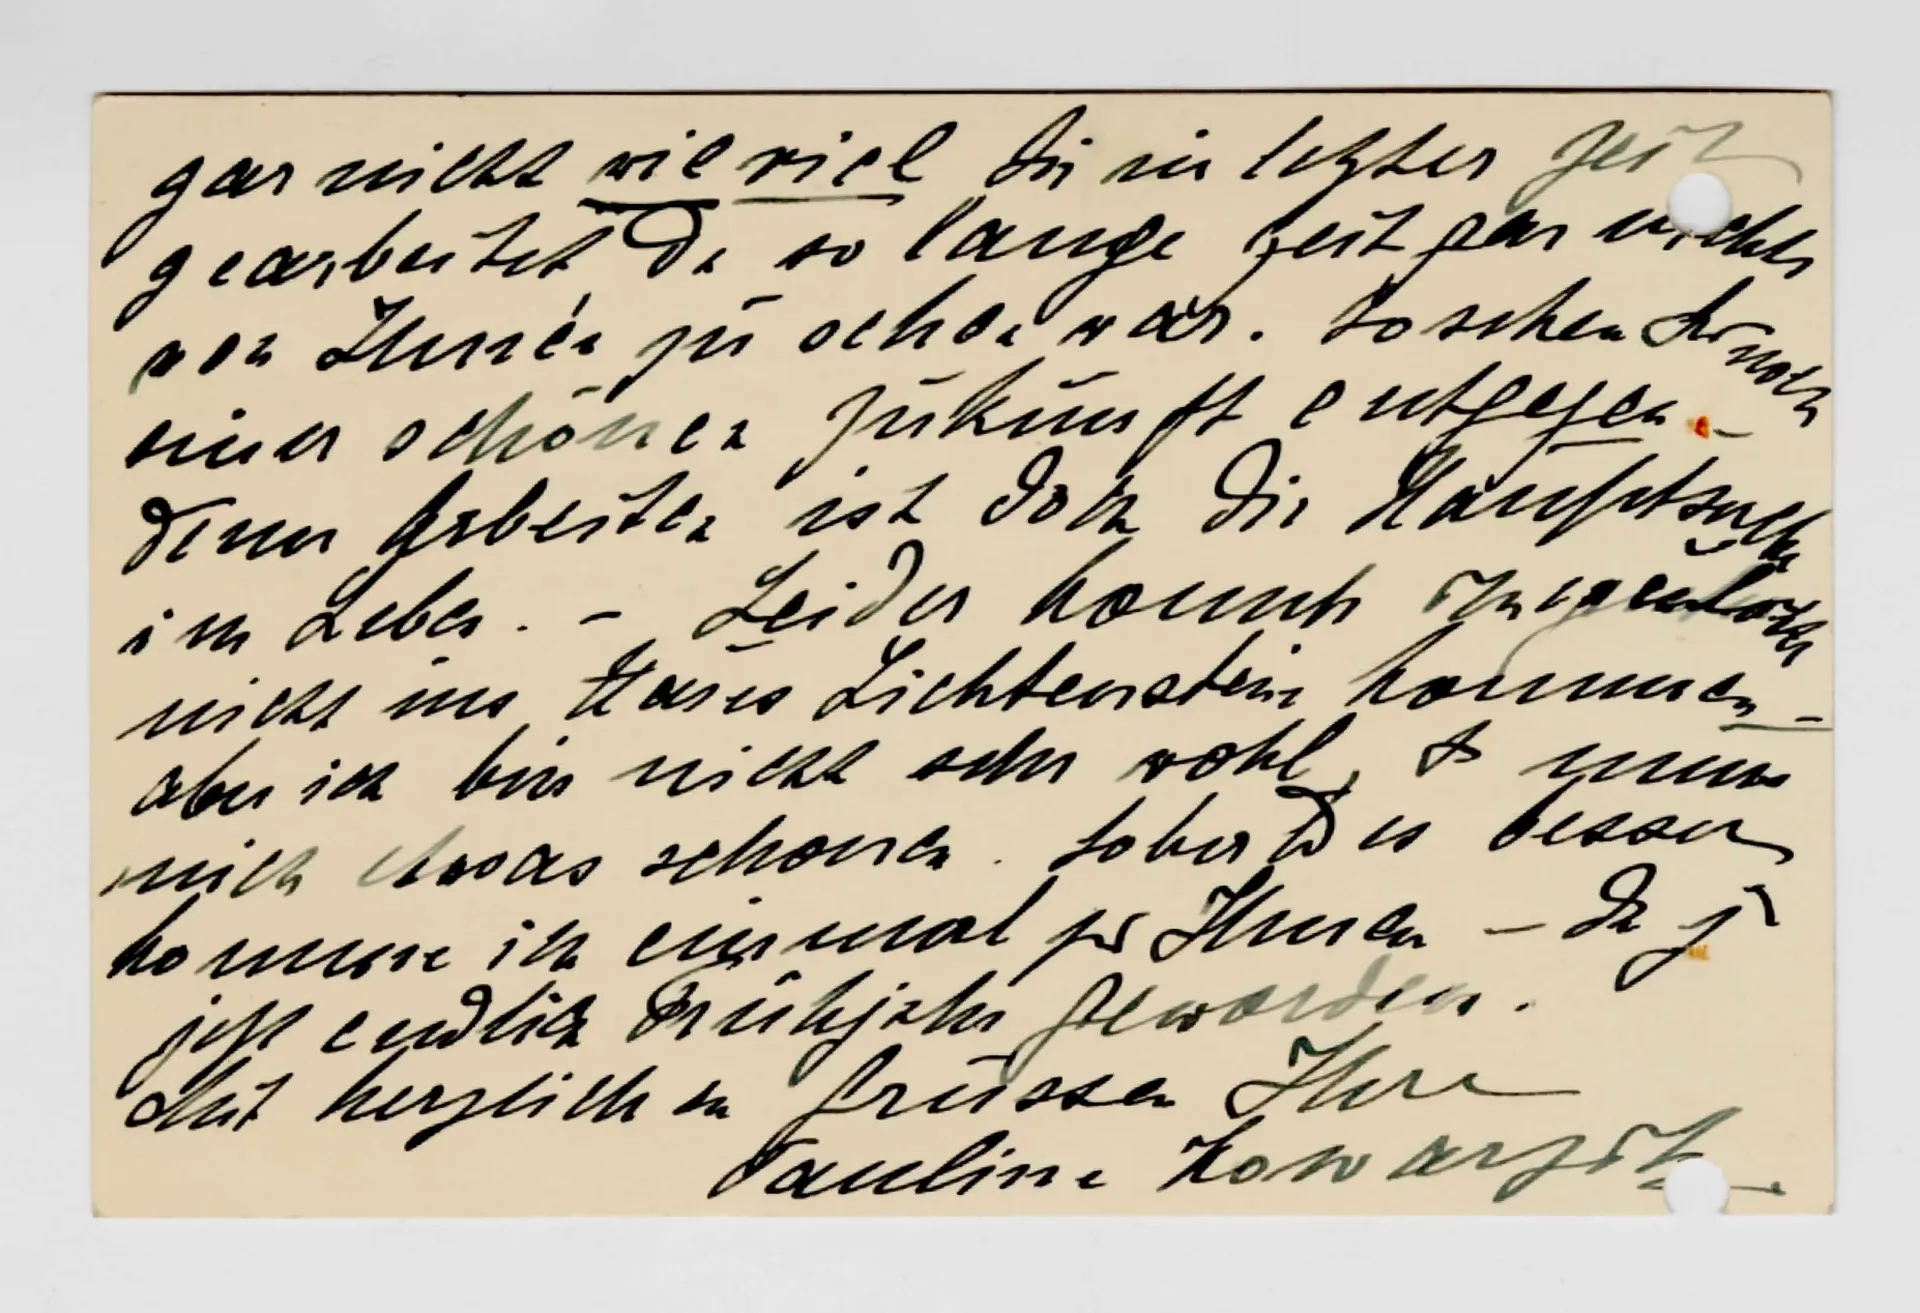 gar nicht wie viel Sie in letzter Zeit
gearbeitet da so lange Zeit gar nichts
von Ihnen zu sehen war. So sehen Sie noch
einer schönen Zukunft entgegen –
denn Arbeiten ist doch die Hauptsache
im Leben. – Leider konnte ich
nicht ins Haus Lichtenstein kommen –
aber ich bin nicht sehr wohl, & muss
mich etwas schonen. Sobald es besser
komme ich einmal zu Ihnen – da ja
jetzt endlich Frühjahr geworden.
Mit herzlichen Grüssen Ihre
Pauline Kowarzik